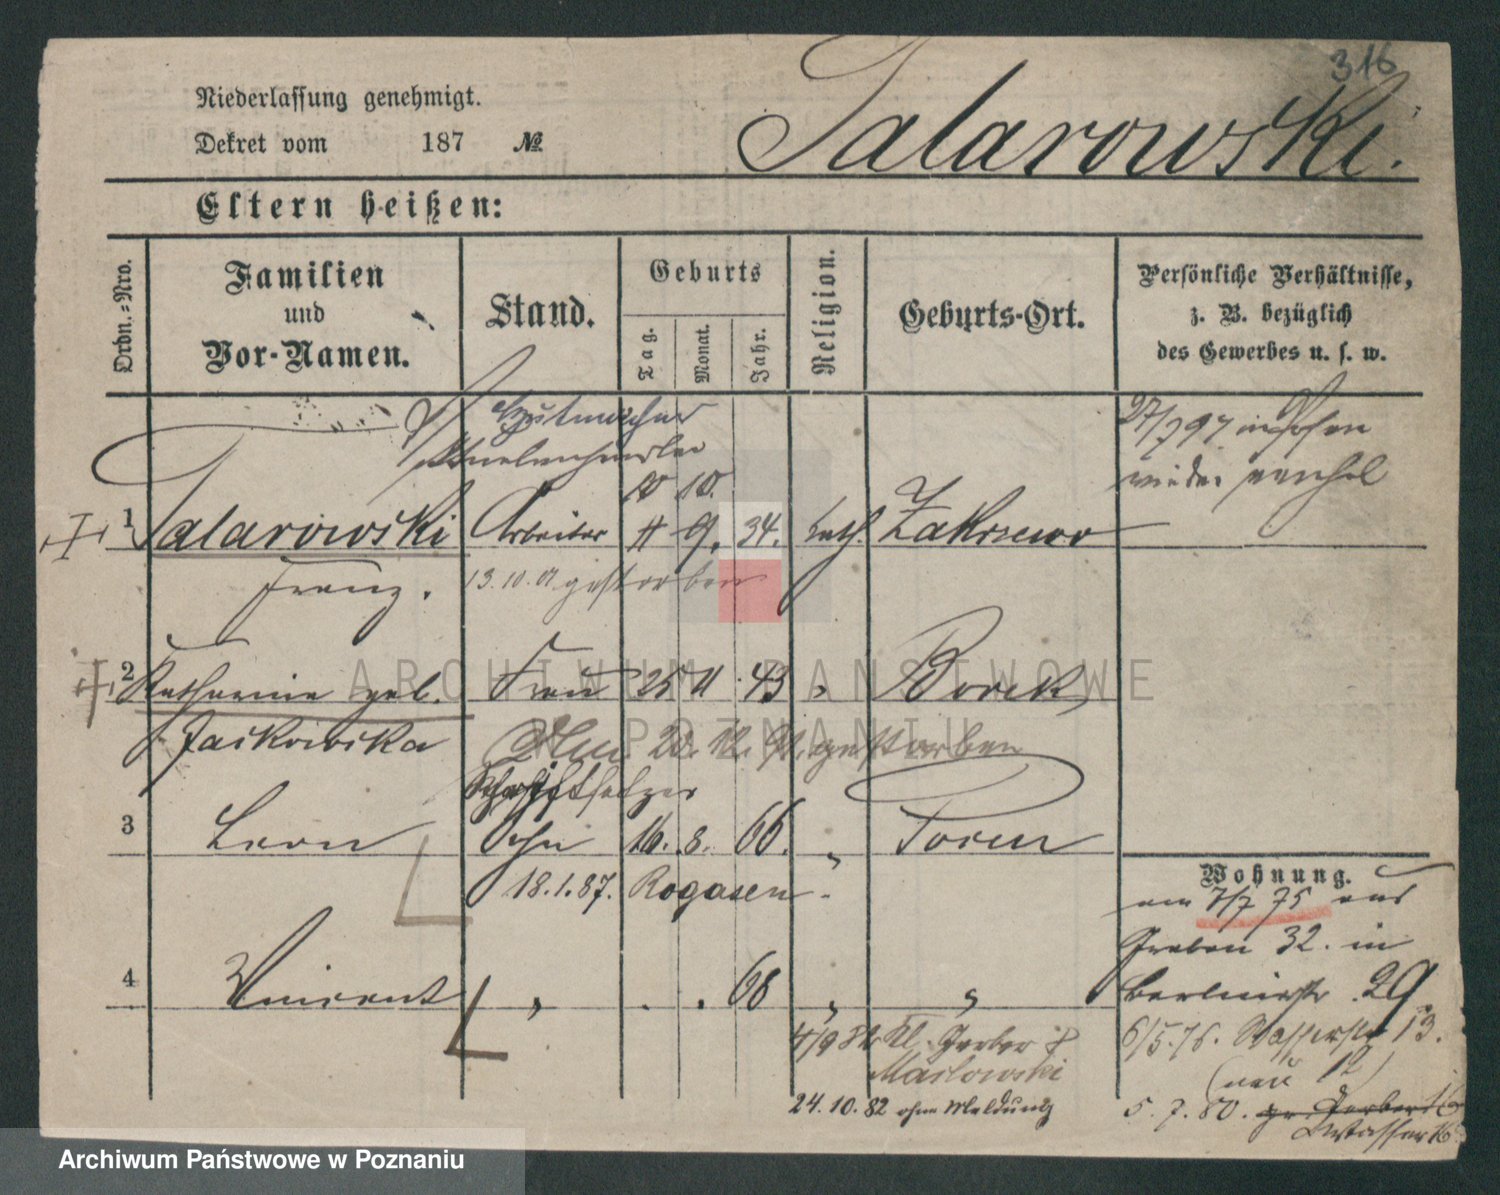 316
Niederlassung genehmigt.
Dekret vom 187 №
Talarowski.
Eltern heißen:
Ordn.-Nro.
Familien
und
Vor-Namen.
Stand.
Geburts
Tag.
Monat.
Jahr.
Religion.
Geburts-Ort.
Persönliche Verhältnisse,
z. B. bezüglich
des Gewerbes u. s. w.
27/7 97 in Posen
wieder
10 10.
1 Talarowski Arbeiter 11 9. 34. kath. Zakrzewo
Franz. 13.10.01 gestorben
2 Katharina geb. Frau 25 11 43 " Borek
Jaskowska 20. 12. gestorben
Schriftsetzer
3 Leon Sohn 16. 8. 66. " Posen
18.1.87. Rogasen.
Wohnung.
am 7/7 75 aus
Graben 32. in
4 Vincent " . . 68 " "
Berlinerstr. 29
4/9 Kl. Gerber
Maslowski
6/5.76. Wasserstr 13.
(neu 12)
24.10.82 ohne Meldung
5.7.80. gr. Gerber 16
Wasser 16
ARCHIWUM PAŃSTWOWE
W POZNANIU
Archiwum Państwowe w Poznaniu